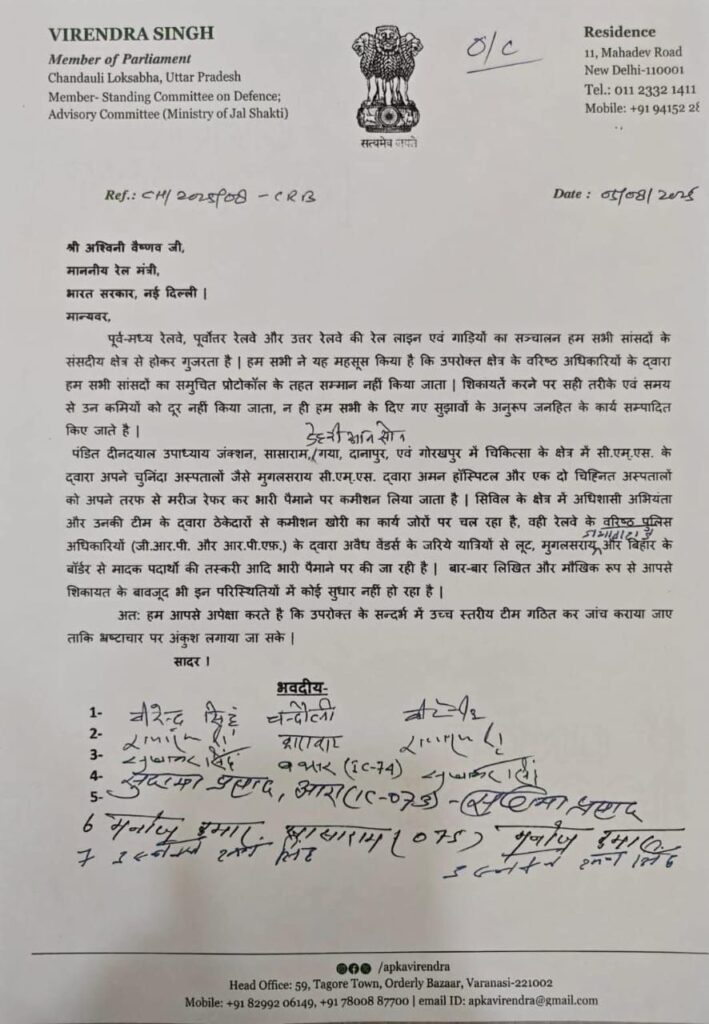 VIRENDRA SINGH
Member of Parliament
Chandauli Loksabha, Uttar Pradesh
Member- Standing Committee on Defence;
Advisory Committee (Ministry of Jal Shakti)
सत्यमेव जयते
O/C
Residence
11, Mahadev Road
New Delhi-110001
Tel.: 011 2332 1411
Mobile: +91 94152 28
Ref.: CH/2025/08 - CRB
Date : 05/08/2025
श्री अश्विनी वैष्णव जी,
माननीय रेल मंत्री,
भारत सरकार, नई दिल्ली |
मान्यवर,
पूर्व-मध्य रेलवे, पूर्वोतर रेलवे और उत्तर रेलवे की रेल लाइन एवं गाड़ियों का सञ्चालन हम सभी सांसदों के
संसदीय क्षेत्र से होकर गुजरता है | हम सभी ने यह महसूस किया है कि उपरोक्त क्षेत्र के वरिष्ठ अधिकारियों के द्वारा
हम सभी सांसदों का समुचित प्रोटोकॉल के तहत सम्मान नहीं किया जाता | शिकायतें करने पर सही तरीके एवं समय
से उन कमियों को दूर नहीं किया जाता, न ही हम सभी के दिए गए सुझावों के अनुरूप जनहित के कार्य सम्पादित
किए जाते है |
पंडित दीनदयाल उपाध्याय जंक्शन, सासाराम, गया, दानापुर, एवं गोरखपुर में चिकित्सा के क्षेत्र में सी.एम.एस. के
द्वारा अपने चुनिंदा अस्पतालों जैसे मुगलसराय सी.एम.एस. द्वारा अमन हॉस्पिटल और एक दो चिन्हित अस्पतालों
को अपने तरफ से मरीज रेफर कर भारी पैमाने पर कमीशन लिया जाता है | सिविल के क्षेत्र में अधिशासी अभियंता
और उनकी टीम के द्वारा ठेकेदारों से कमीशन खोरी का कार्य जोरों पर चल रहा है, वही रेलवे के वरिष्ठ पुलिस
अधिकारियों (जी.आर.पी. और आर.पी.एफ.) के द्वारा अवैध वेंडर्स के जरिये यात्रियों से लूट, मुगलसराय और बिहार के
बॉर्डर से मादक पदार्थों की तस्करी आदि भारी पैमाने पर की जा रही है | बार-बार लिखित और मौखिक रूप से आपसे
शिकायत के बावजूद भी इन परिस्थितियों में कोई सुधार नहीं हो रहा है |
अतः हम आपसे अपेक्षा करते है कि उपरोक्त के सन्दर्भ में उच्च स्तरीय टीम गठित कर जांच कराया जाए
ताकि भ्रष्टाचार पर अंकुश लगाया जा सके |
सादर ।
भवदीय-
1- वीरेन्द्र सिंह चन्दौली
2-
3- सुधाकर सिंह बक्सर (IC-74) सुधाकर सिंह
4- सुदामा प्रसाद, आरा (IC-073) - सुदामा प्रसाद
5-
6 मनोज कुमार सासाराम (075) मनोज कुमार
7
/apkavirendra
Head Office: 59, Tagore Town, Orderly Bazaar, Varanasi-221002
Mobile: +91 82992 06149, +91 78008 87700 | email ID: apkavirendra@gmail.com